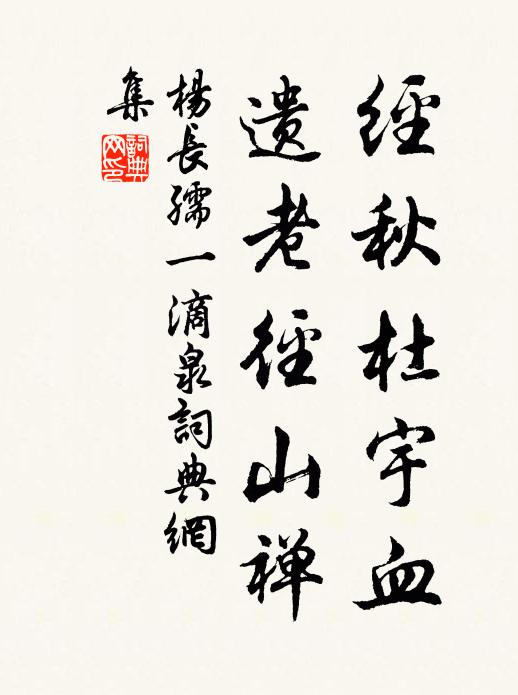 經秋杜宇血
遺老徑山禅
楊長孺一滴泉詞典網
集
詞典
网印